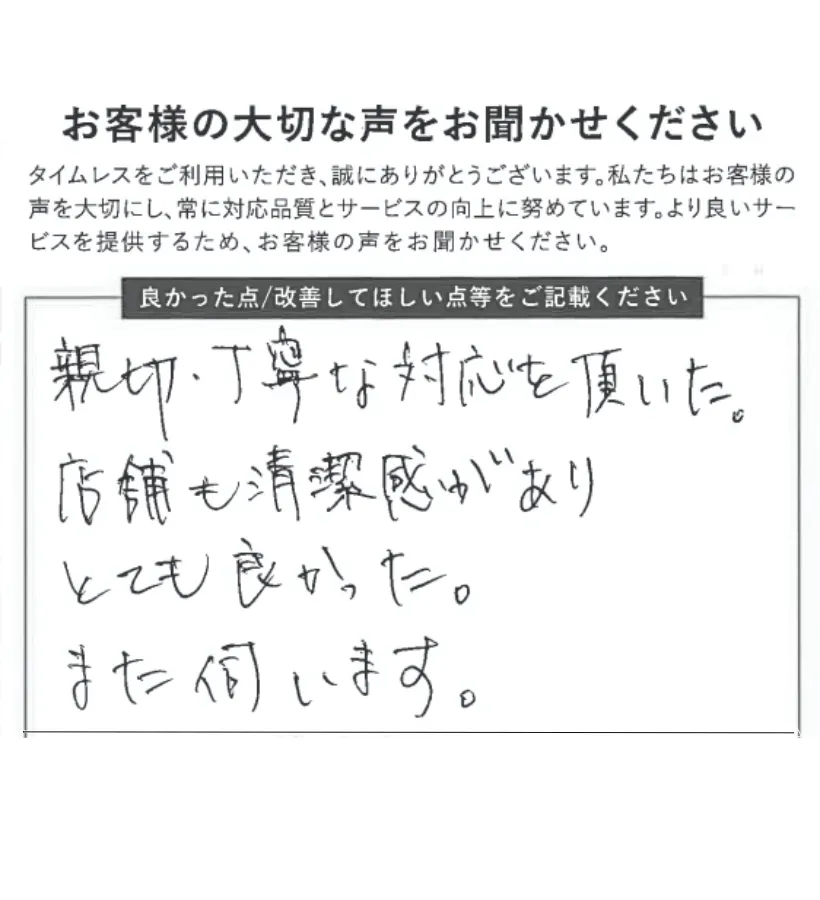 お客様の大切な声をお聞かせください
タイムレスをご利用いただき、誠にありがとうございます。私たちはお客様の
声を大切にし、常に対応品質とサービスの向上に努めています。より良いサー
ビスを提供するため、お客様の声をお聞かせください。
良かった点/改善してほしい点等をご記載ください
親切・丁寧な対応を頂いた。
店舗も清潔感があり
とても良かった。
また伺います。